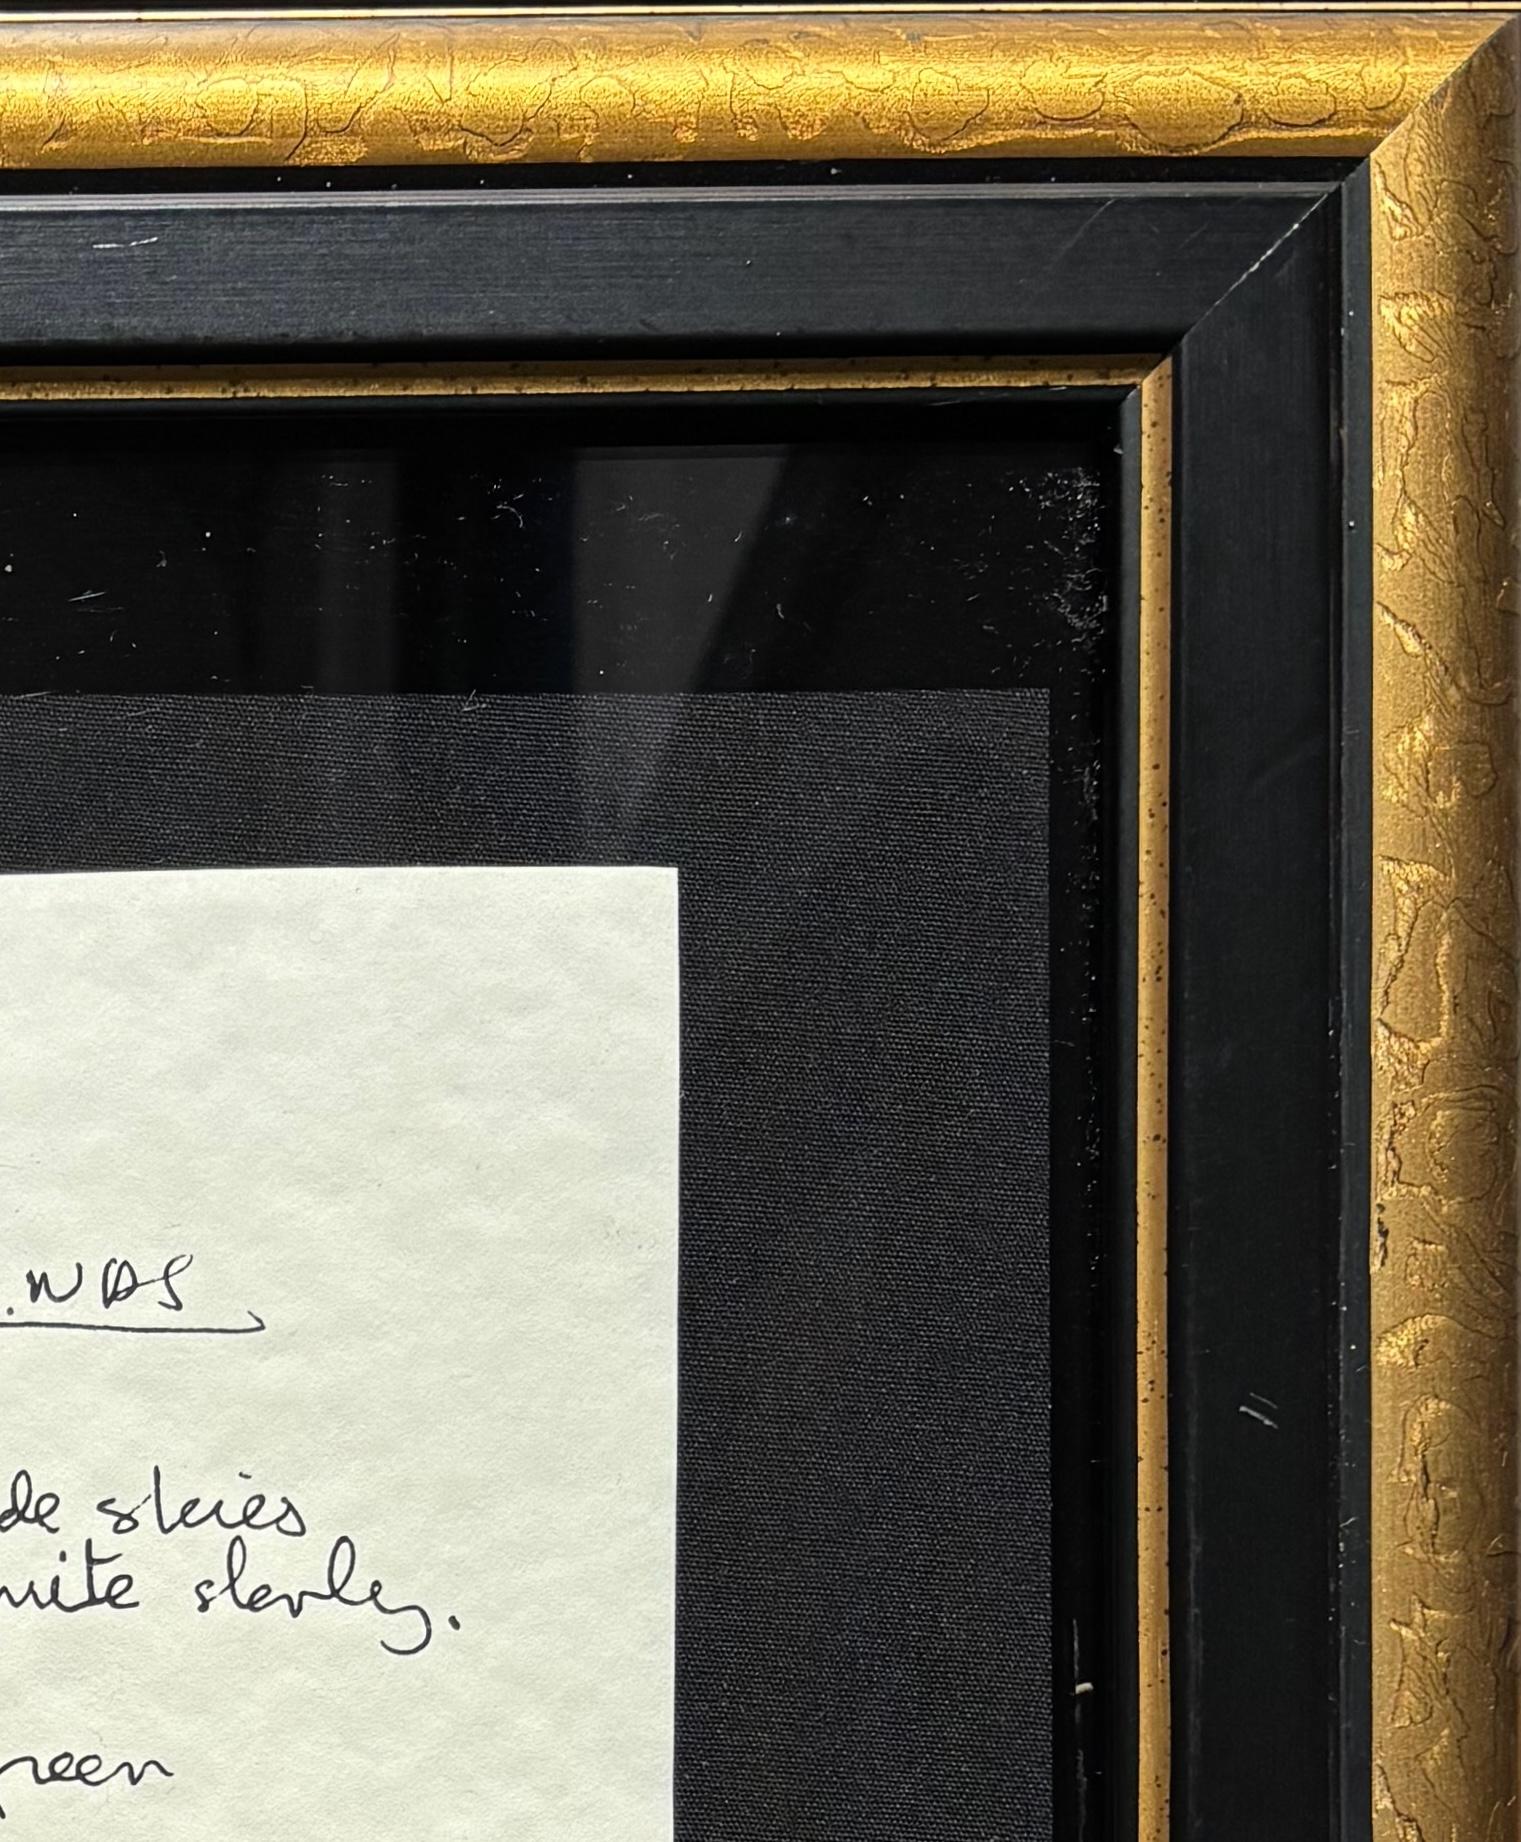 .NDS
de skies
uite slowly.
reen